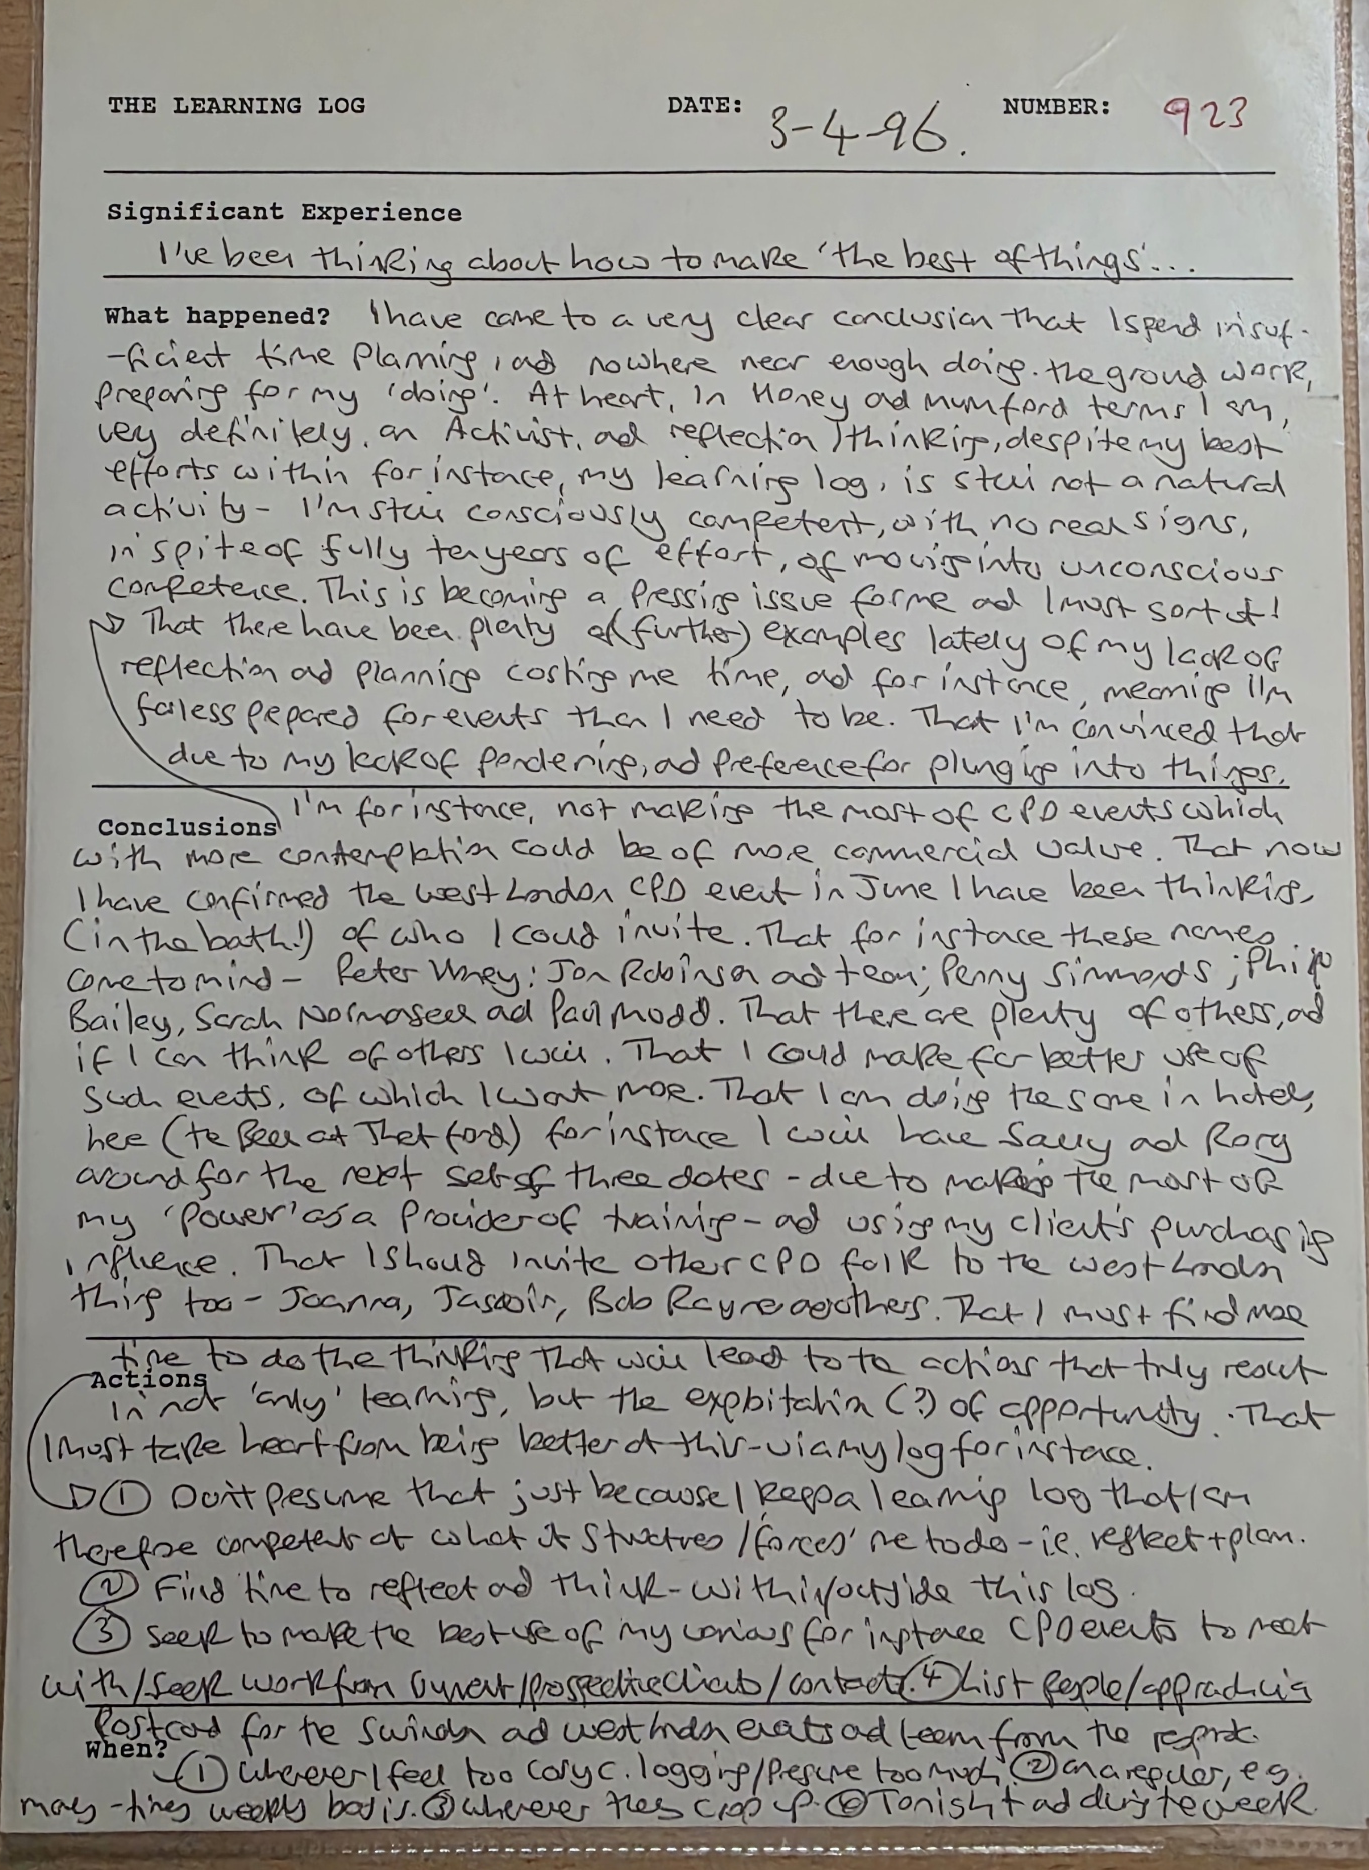 THE LEARNING LOG DATE: 3-4-96. NUMBER: 923
Significant Experience
I've been thinking about how to make 'the best of things'...
What happened? I have come to a very clear conclusion that I spend insuf-
-ficient time planning, and nowhere near enough doing the ground work,
preparing for my 'doing'. At heart, in Honey and Mumford terms I am,
very definitely, an Activist, and reflection/thinking, despite my best
efforts within for instance, my learning log, is still not a natural
activity - I'm still consciously competent, with no real signs,
in spite of fully ten years of effort, of moving into unconscious
competence. This is becoming a pressing issue for me and I must sort it!
That there have been plenty of (further) examples lately of my lack of
reflection and planning costing me time, and for instance, meaning I'm
far less prepared for events than I need to be. That I'm convinced that
due to my lack of pondering, and preference for plunging into things,
I'm for instance, not making the most of CPD events which
Conclusions
with more contemplation could be of more commercial value. That now
I have confirmed the West London CPD event in June I have been thinking,
(in the bath!) of who I could invite. That for instance these names
come to mind - Peter ; Jon Robinson and team; Penny Simmonds; Philip
Bailey, Sarah and Paul Mudd. That there are plenty of others, and
if I can think of others I will. That I could make far better use of
such events, of which I want more. That I am doing the same in hotels,
here (the Bell at Thetford) for instance I will have Sally and Rory
around for the next set of three dates - due to making the most of
my 'power' as a provider of training - and using my client's purchasing
influence. That I should invite other CPD folk to the West London
thing too - Joanna, , Bob Rayne and others. That I must find more
time to do the thinking that will lead to the actions that truly result
Actions
in not 'only' learning, but the exploitation (?) of opportunity. That
I must take heart from being better at this - via my log for instance.
① Don't presume that just because I keep a learning log that I am
therefore competent at what it structures/'forces' me to do - i.e. reflect + plan.
② Find time to reflect and think - within/outside this log.
③ Seek to make the best use of my various for instance CPD events to meet
with/seek work from current/prospective clients/contacts. ④ List people/
postcard for the Swindon and West London events and team from the
When?
① Whenever I feel too cosy c. logging/presume too much. ② On a regular, e.g.
many-times weekly basis. ③ Whenever they crop up. ④ Tonight and during the week.